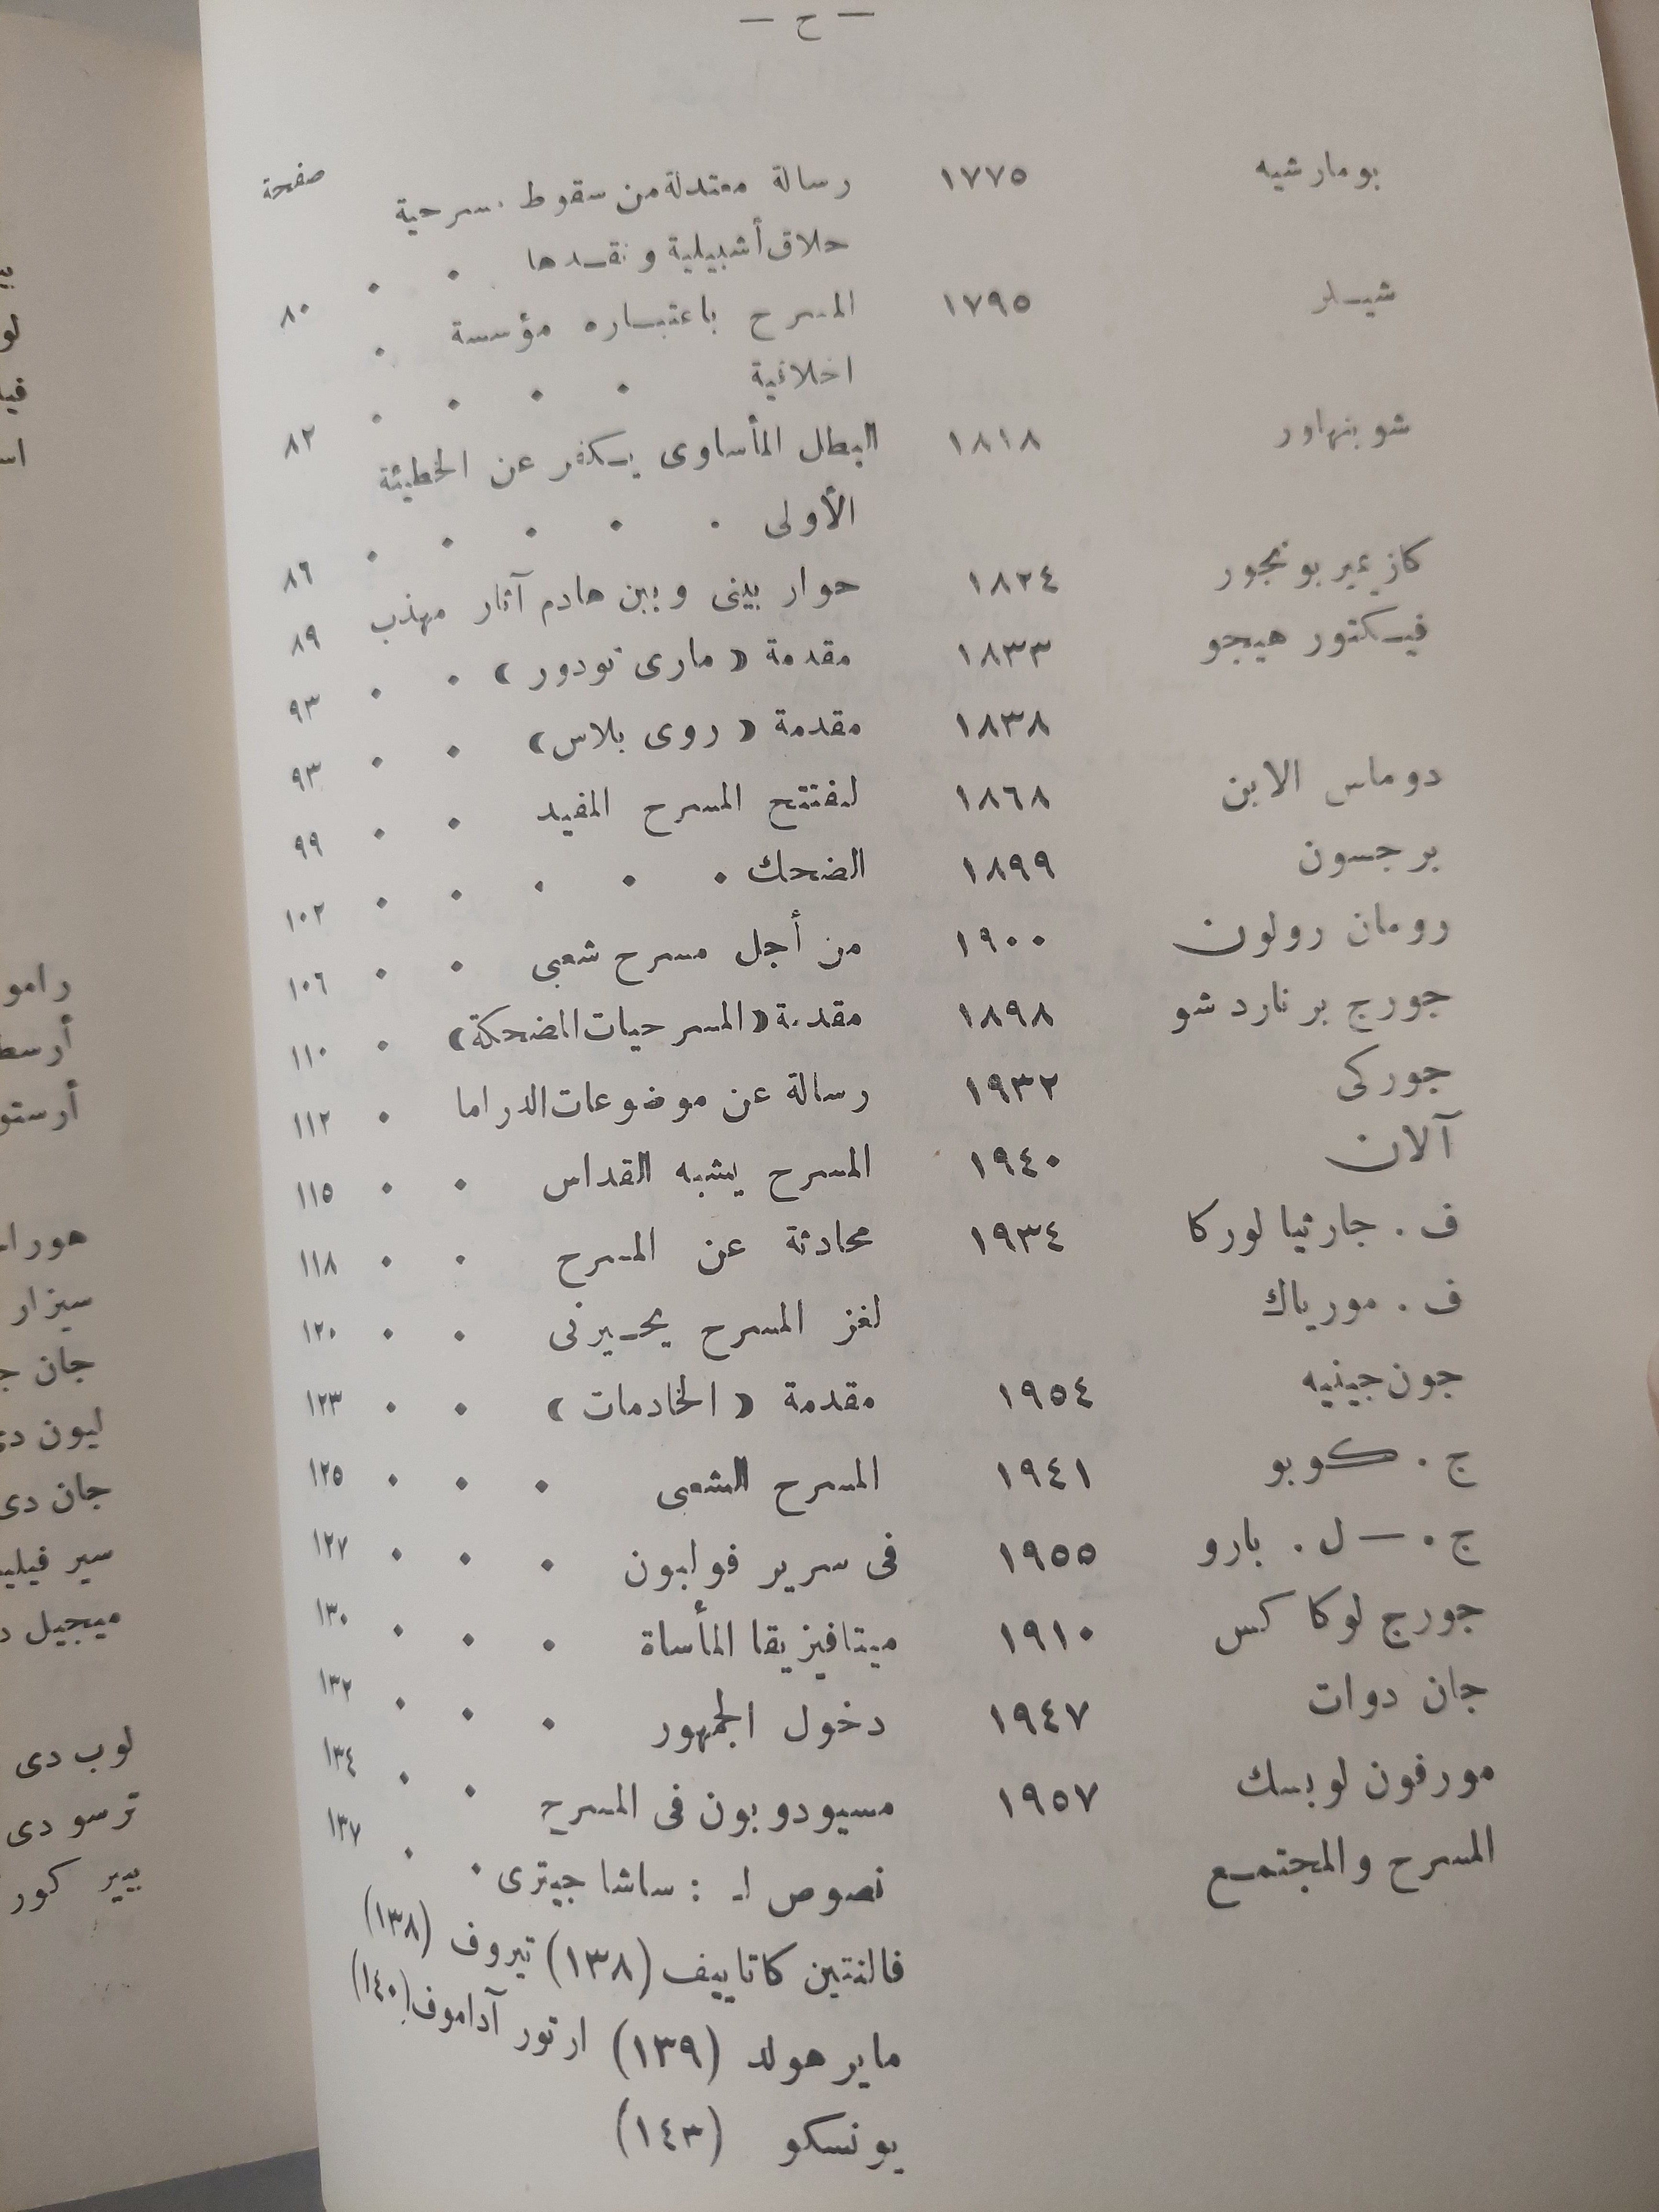 — ح —
صفحة
بومارشيه ١٧٧٥ رسالة معتدلة من سقوط مسرحية
حلاق أشبيلية ونقدها . . ٨٠
شيلر ١٧٩٥ المسرح باعتباره مؤسسة .
اخلاقية . . . . ٨٢
شوبنهاور ١٨١٨ البطل المأساوى يكفر عن الخطيئة
الأولى . . . . . ٨٦
كازيمير بونجور ١٨٢٤ حوار بينى وبين هادم آثار مهذب ٨٩
فيكتور هيجو ١٨٣٣ مقدمة « مارى تودور » . . ٩٣
١٨٣٨ مقدمة « روى بلاس » . . ٩٣
دوماس الابن ١٨٦٨ لنفتتح المسرح المفيد . . ٩٩
برجسون ١٨٩٩ الضحك . . . . . ١٠٢
رومان رولون ١٩٠٠ من أجل مسرح شعبى . . ١٠٦
جورج برنارد شو ١٨٩٨ مقدمة « المسرحيات المضحكة » . ١١٠
جوركى ١٩٣٢ رسالة عن موضوعات الدراما . ١١٢
آلان ١٩٤٠ المسرح يشبه القداس . . ١١٥
ف . جارثيا لوركا ١٩٣٤ محادثة عن المسرح . . ١١٨
ف . مورياك لغز المسرح يحيرنى . . ١٢٠
جون جينيه ١٩٥٤ مقدمة « الخادمات » . . ١٢٣
ج . كوبو ١٩٤١ المسرح الشعبى . . . ١٢٥
ج . — ل . بارو ١٩٥٥ فى سرير فولبون . . . ١٢٧
جورج لوكا كس ١٩١٠ ميتافيزيقا المأساة . . . ١٣٠
جان دوات ١٩٤٧ دخول الجمهور . . . ١٣٢
مورفون لوبسك ١٩٥٧ مسيودوبون فى المسرح . . ١٣٤
المسرح والمجتمع نصوص لـ : ساشا جيترى . . ١٣٧
فالنتين كاتاييف (١٣٨) تيروف (١٣٨)
ماير هولد (١٣٩) ارتور آداموف (١٤٠)
يونسكو (١٤٣)
رامو
أرسط
أرستو
هورا
سيزار
جان ج
ليون دى
جان دى
سير فيليـ
ميجيل د
لوب دى
ترسو دى
بيير كور